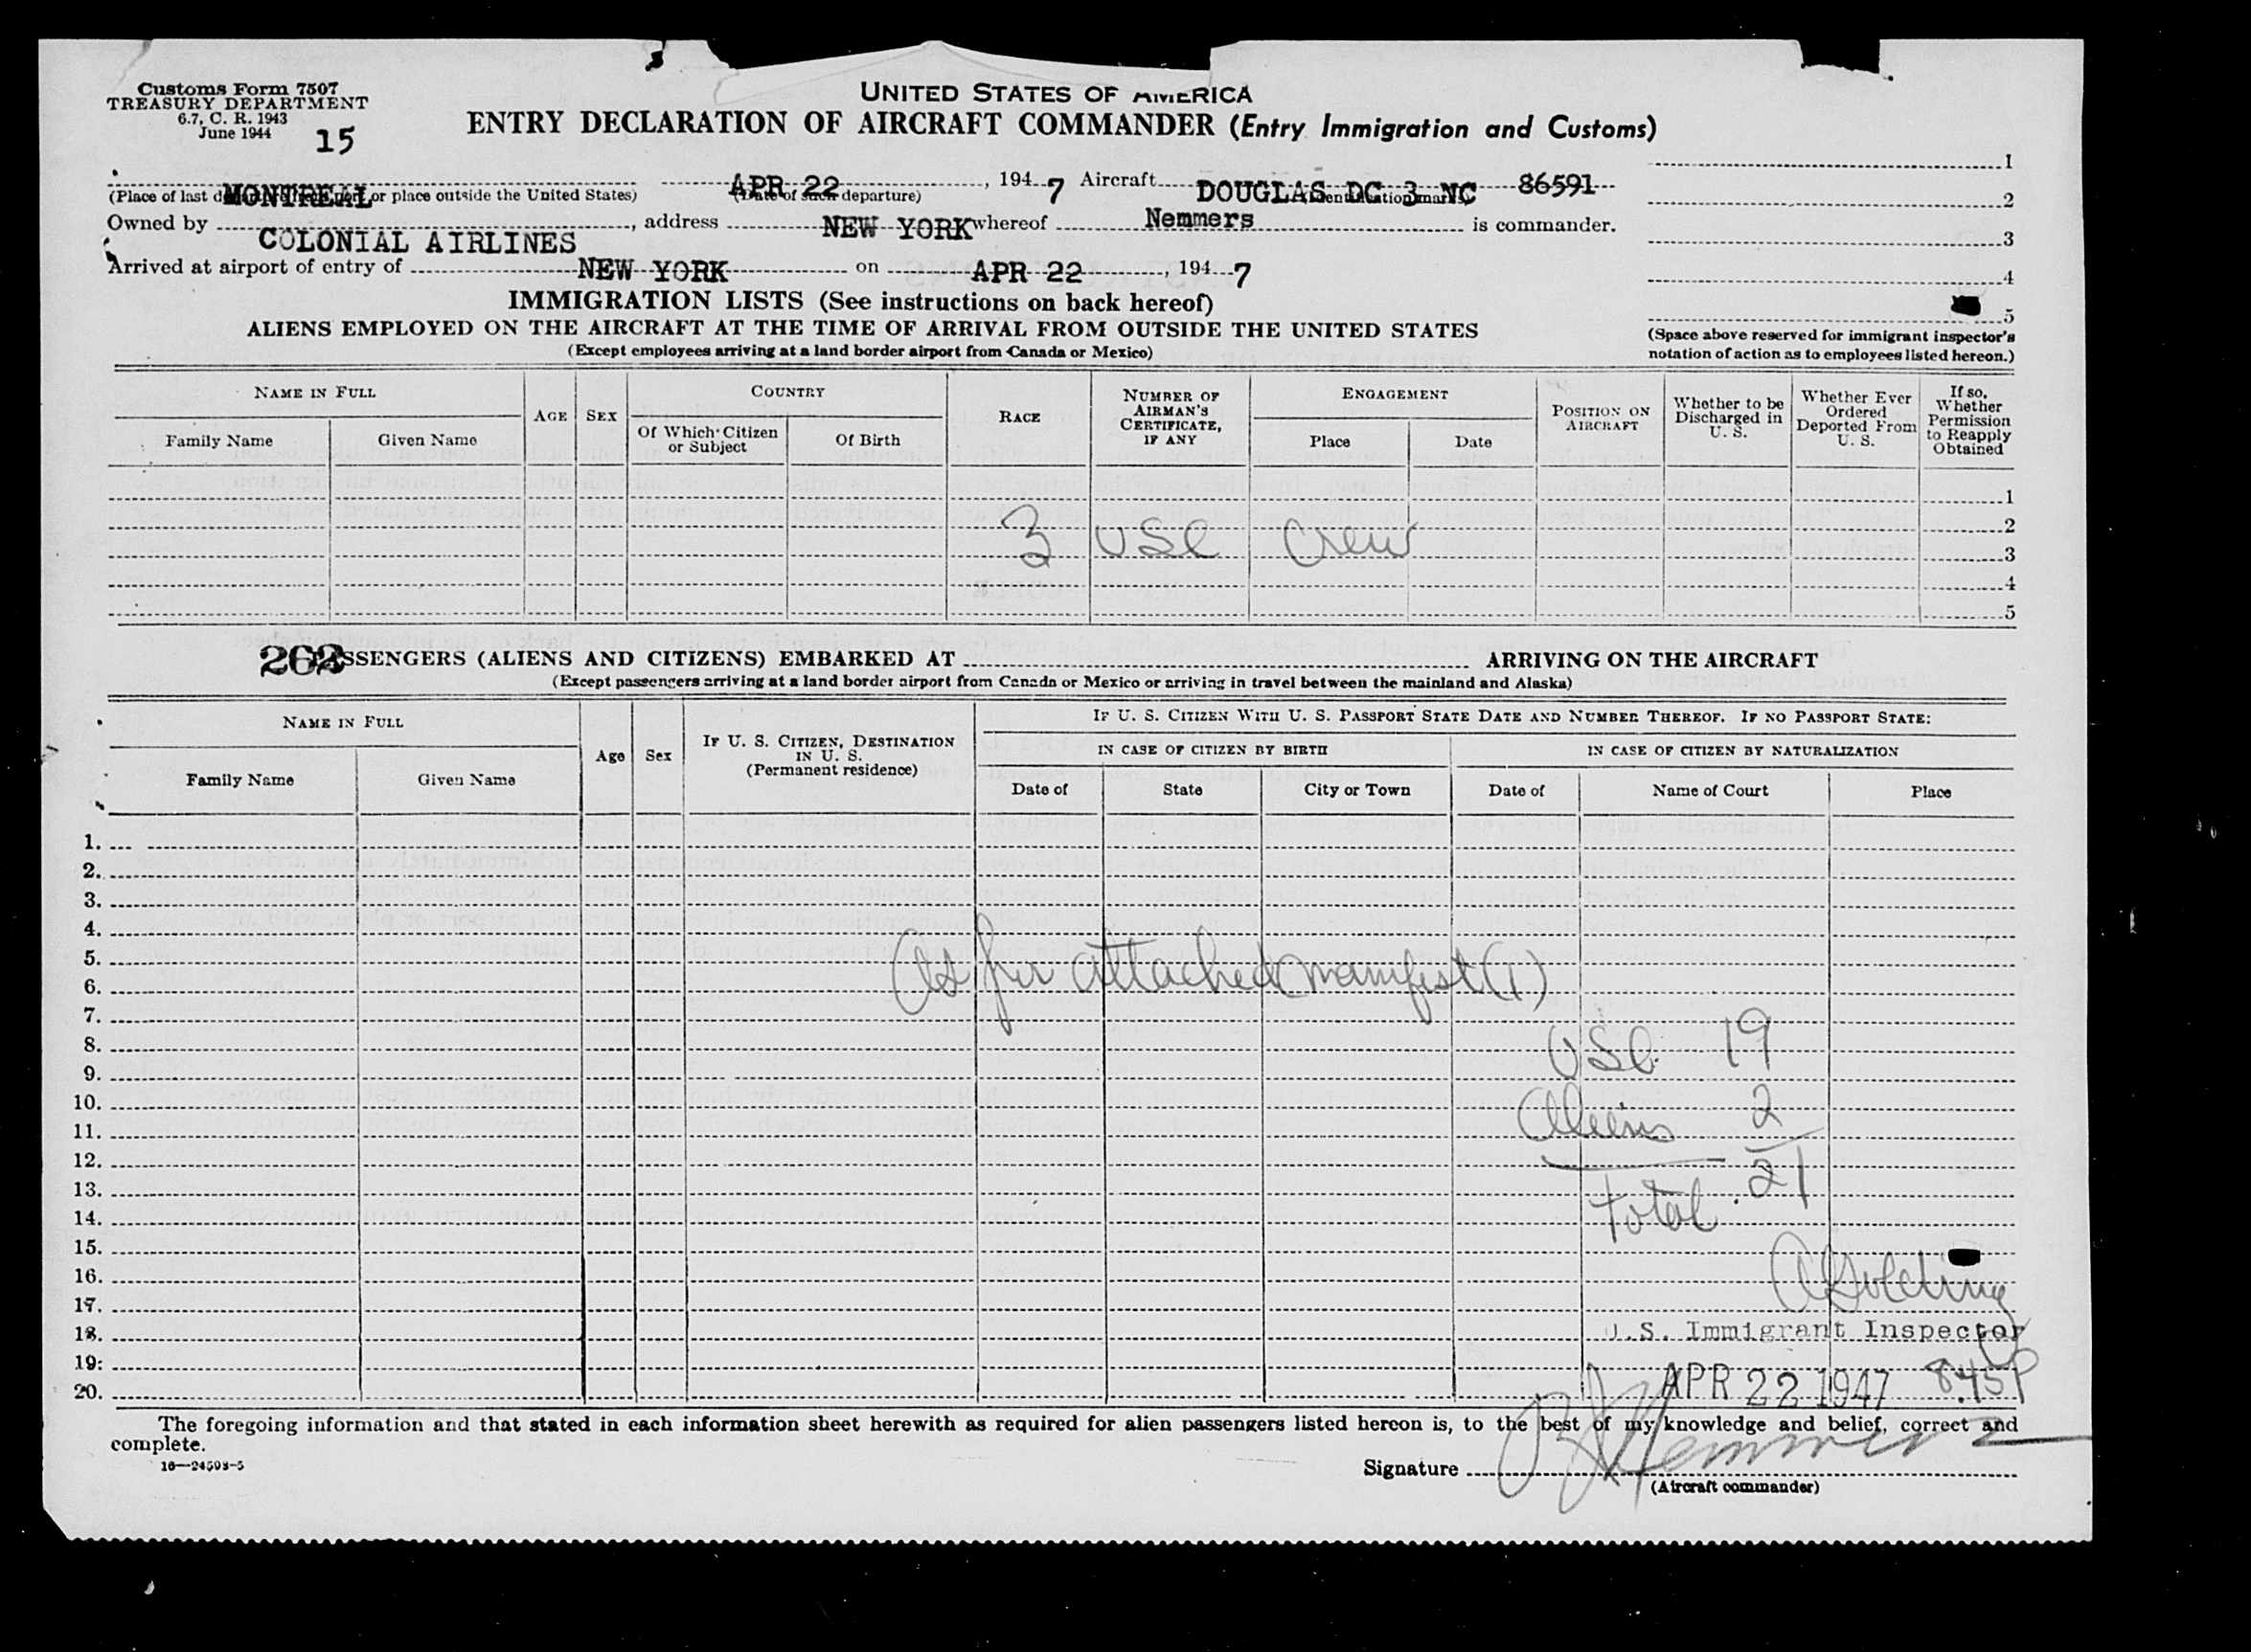 Customs Form 7507
TREASURY DEPARTMENT
6.7, C. R. 1943
June 1944
15
UNITED STATES OF AMERICA
ENTRY DECLARATION OF AIRCRAFT COMMANDER (Entry Immigration and Customs)
MONTREAL APR 22, 1947 Aircraft DOUGLAS DC 3 NC 86591
(Place of last departure from port or place outside the United States) (Date of such departure) (Identification marks)
Owned by COLONIAL AIRLINES, address NEW YORK whereof Nemmers is commander.
Arrived at airport of entry of NEW YORK on APR 22, 1947
1
2
3
4
5
(Space above reserved for immigrant inspector's
notation of action as to employees listed hereon.)
IMMIGRATION LISTS (See instructions on back hereof)
ALIENS EMPLOYED ON THE AIRCRAFT AT THE TIME OF ARRIVAL FROM OUTSIDE THE UNITED STATES
(Except employees arriving at a land border airport from Canada or Mexico)
NAME IN FULL
Family Name
Given Name
AGE
SEX
COUNTRY
Of Which Citizen
or Subject
Of Birth
RACE
NUMBER OF
AIRMAN'S
CERTIFICATE,
IF ANY
ENGAGEMENT
Place
Date
POSITION ON
AIRCRAFT
Whether to be
Discharged in
U. S.
Whether Ever
Ordered
Deported From
U. S.
If so,
Whether
Permission
to Reapply
Obtained
1
2
3 USC Crew
3
4
5
262
PASSENGERS (ALIENS AND CITIZENS) EMBARKED AT ARRIVING ON THE AIRCRAFT
(Except passengers arriving at a land border airport from Canada or Mexico or arriving in travel between the mainland and Alaska)
NAME IN FULL
Family Name
Given Name
Age
Sex
IF U. S. CITIZEN, DESTINATION
IN U. S.
(Permanent residence)
IF U. S. CITIZEN WITH U. S. PASSPORT STATE DATE AND NUMBER THEREOF. IF NO PASSPORT STATE:
IN CASE OF CITIZEN BY BIRTH
Date of
State
City or Town
IN CASE OF CITIZEN BY NATURALIZATION
Date of
Name of Court
Place
1.
2.
3.
4.
5.
As per attached manifest (1)
6.
7.
8.
USC 19
9.
10.
Aliens 2
11.
12.
13.
Total 21
14.
15.
16.
A Golding
17.
18.
U.S. Immigrant Inspector
19.
20.
APR 22 1947 8:45P
The foregoing information and that stated in each information sheet herewith as required for alien passengers listed hereon is, to the best of my knowledge and belief, correct and
complete.
16—24593-5
Signature Nemmers
(Aircraft commander)